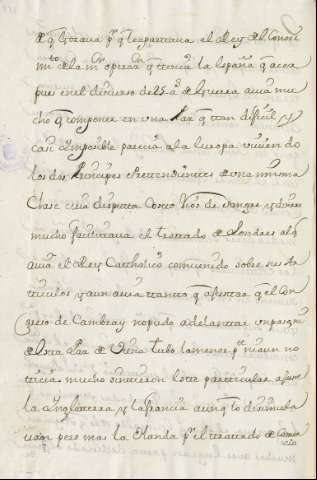 de q̃ lograva p.r q̃ le apartava el Rey del Conoci
m.to de la m.r opera.on q̃ tenia la España q̃ aca
pues en el discurso de 25 a.s de Guerra avia mu
cho q̃ componer en una Paz q̃ tan dificil, y
casi imposible parecia a la Europa viviendo
los dos Principes Pretendientes de una misma
Clase cuia disputa costo rios de sangre y dinero
mucho facilitava el tratado de Londres al q̃
avia el Rey Catholico convenido sobre sus Ar
ticulos, y aun avia tanto q̃ ajustar q̃ el Con
greso de Cambray no pudo adelantar un paso
de esta Paz de Viena tubo la menor p.te ni aun no
ticia mucho sintieron los particulares ajustes
la Inglaterra, y la Francia aunq̃ lo disimula
van pero mas la Olanda p.r el tratado de Comer
cio